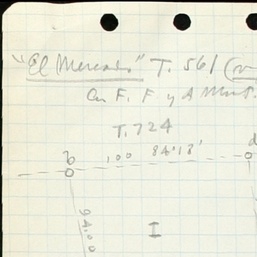 "El Mercado" T. 561 (
F. F y A
T. 724
b 100 84°18' d
94.00
I